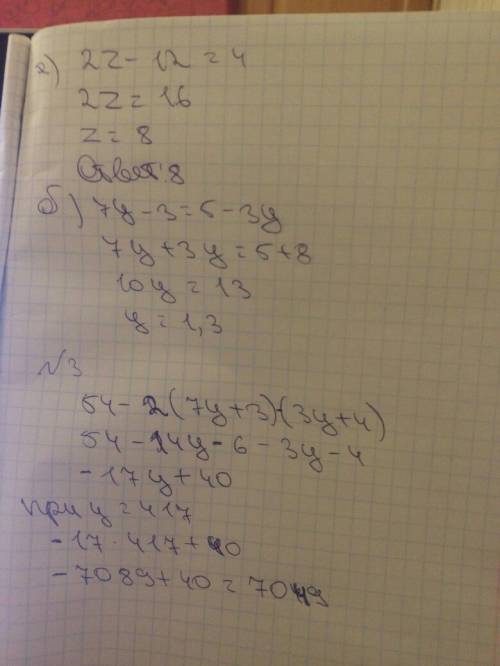 а) 2z - 12 = 4
2z = 16
z = 8
Ответ: 8
б) 7y - 3 = 5 - 3y
7y + 3y = 5 + 8
10y = 13
y = 1,3
№3
54 - 2(7y + 3) - (3y + 4)
54 - 14y - 6 - 3y - 4
-17y + 40
при y = 417
-17 · 417 + 40
-7089 + 40 = 7049